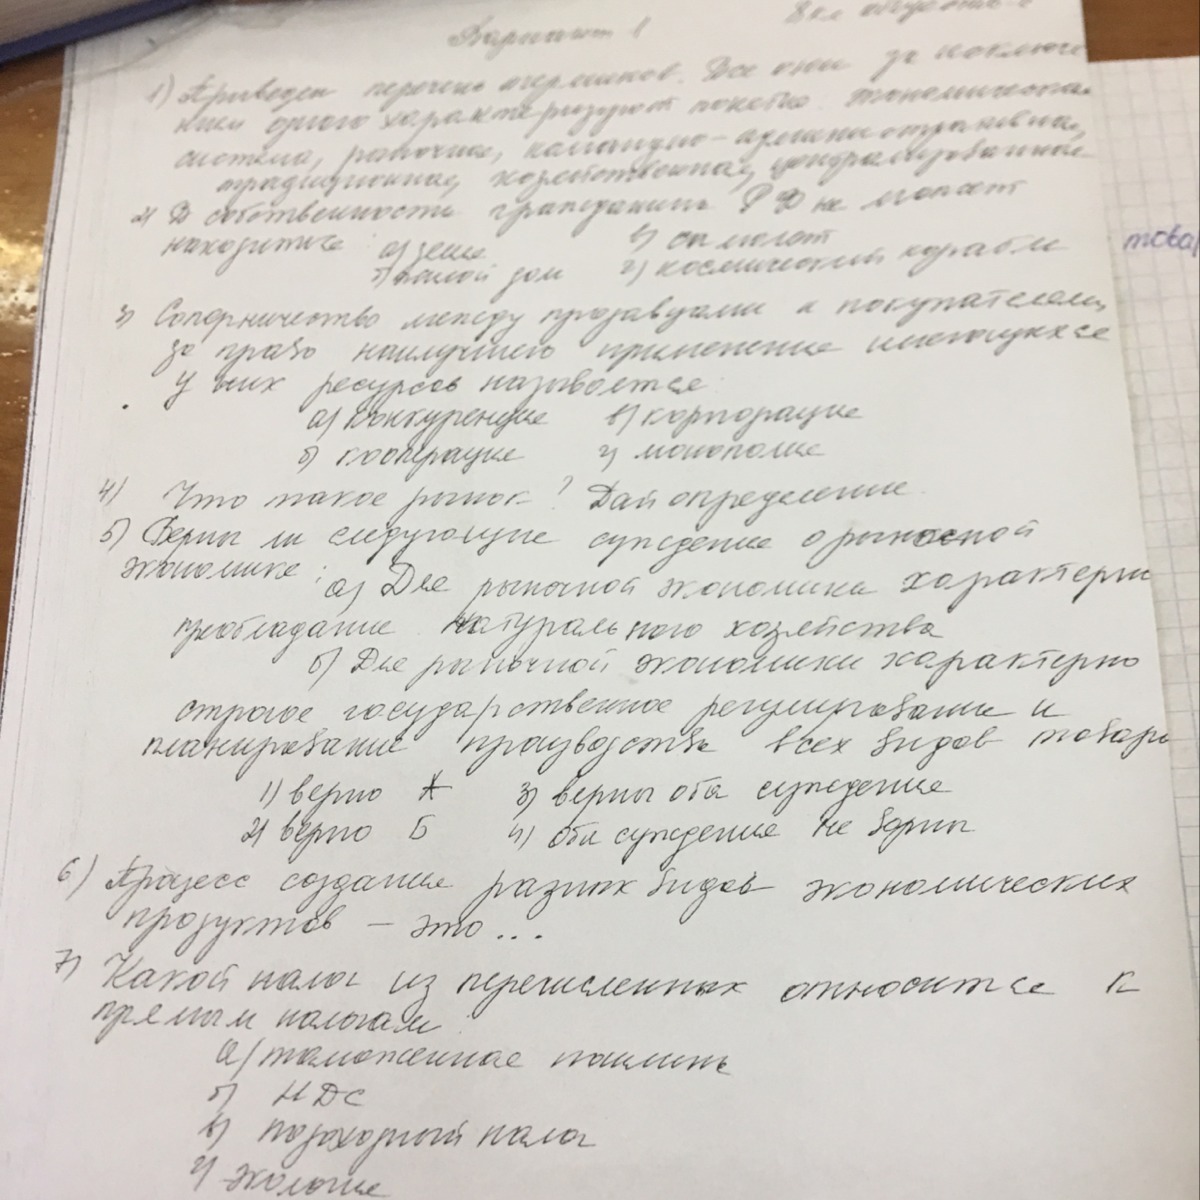 Вариант 1
8 кл
1) Приведен перечень терминов. Все они за исключе-
нием одного характеризуют понятие: экономическая
система, рыночная, командно-административная,
традиционная, хозяйственная, централизованная
2) В собственности гражданина РФ не может
находиться: а) земля в) самолёт
б) жилой дом г) космический корабль
това
3) Соперничество между продавцами и покупателями
за право наилучшего применения имеющихся
у них ресурсов называется:
а) конкуренция в) корпорация
б) кооперация г) монополия
4) Что такое рынок? Дай определение.
5) Верны ли следующие суждения о рыночной
экономике: а) Для рыночной экономики характерны
преобладание натурального хозяйства
б) Для рыночной экономики характерно
строгое государственное регулирование и
планирование производства всех видов товаро
1) верно А 3) верны оба суждения
2) верно Б 4) оба суждения не верны
6) Процесс создания разных видов экономических
продуктов – это...
7) Какой налог из перечисленных относится к
прямым налогам:
а) таможенная пошлина
б) НДС
в) подоходный налог
г)